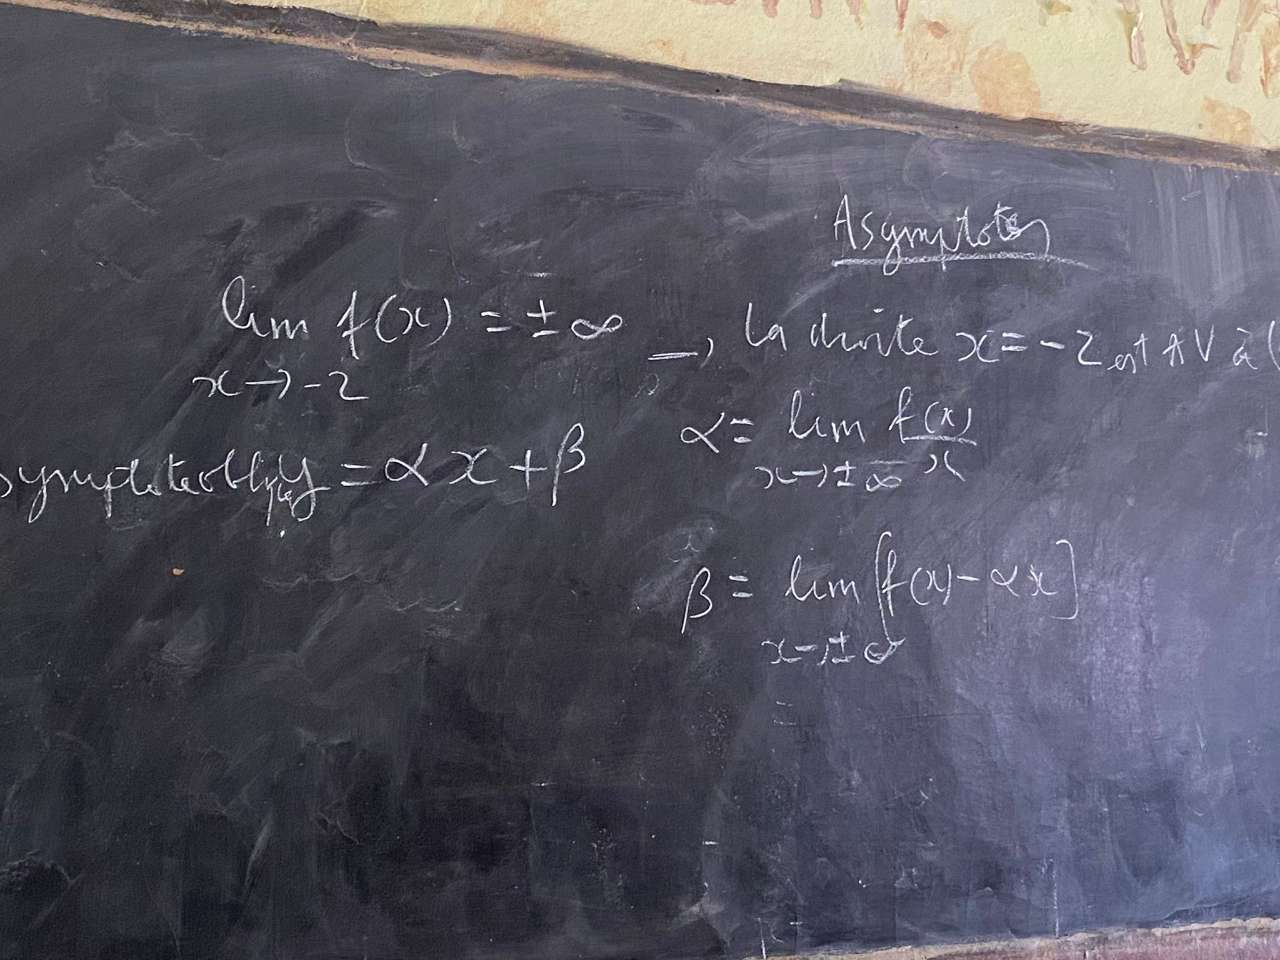 Asymptotes
lim f(x) = ± ∞ → la droite x = -2 est AV à (
x → -2
symptote obliq y = αx + β
α = lim f(x)/x
x → ± ∞
β = lim [f(x) - αx]
x → ± ∞
=